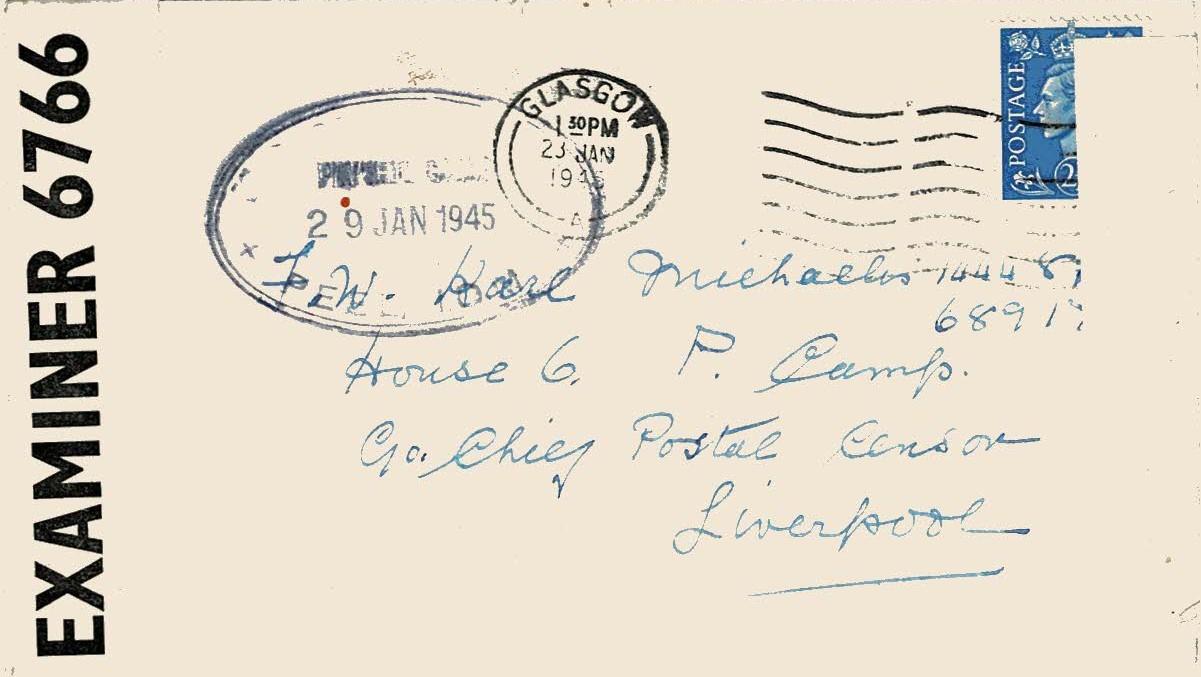 EXAMINER 6766
GLASGOW
1 30 PM
23 JAN
194
A
29 JAN 1945
PEEL
POSTAGE
2
Karl Michaelis 14448
689 1
House 6. P. Camp.
C/o. Chief Postal Censor
Liverpool